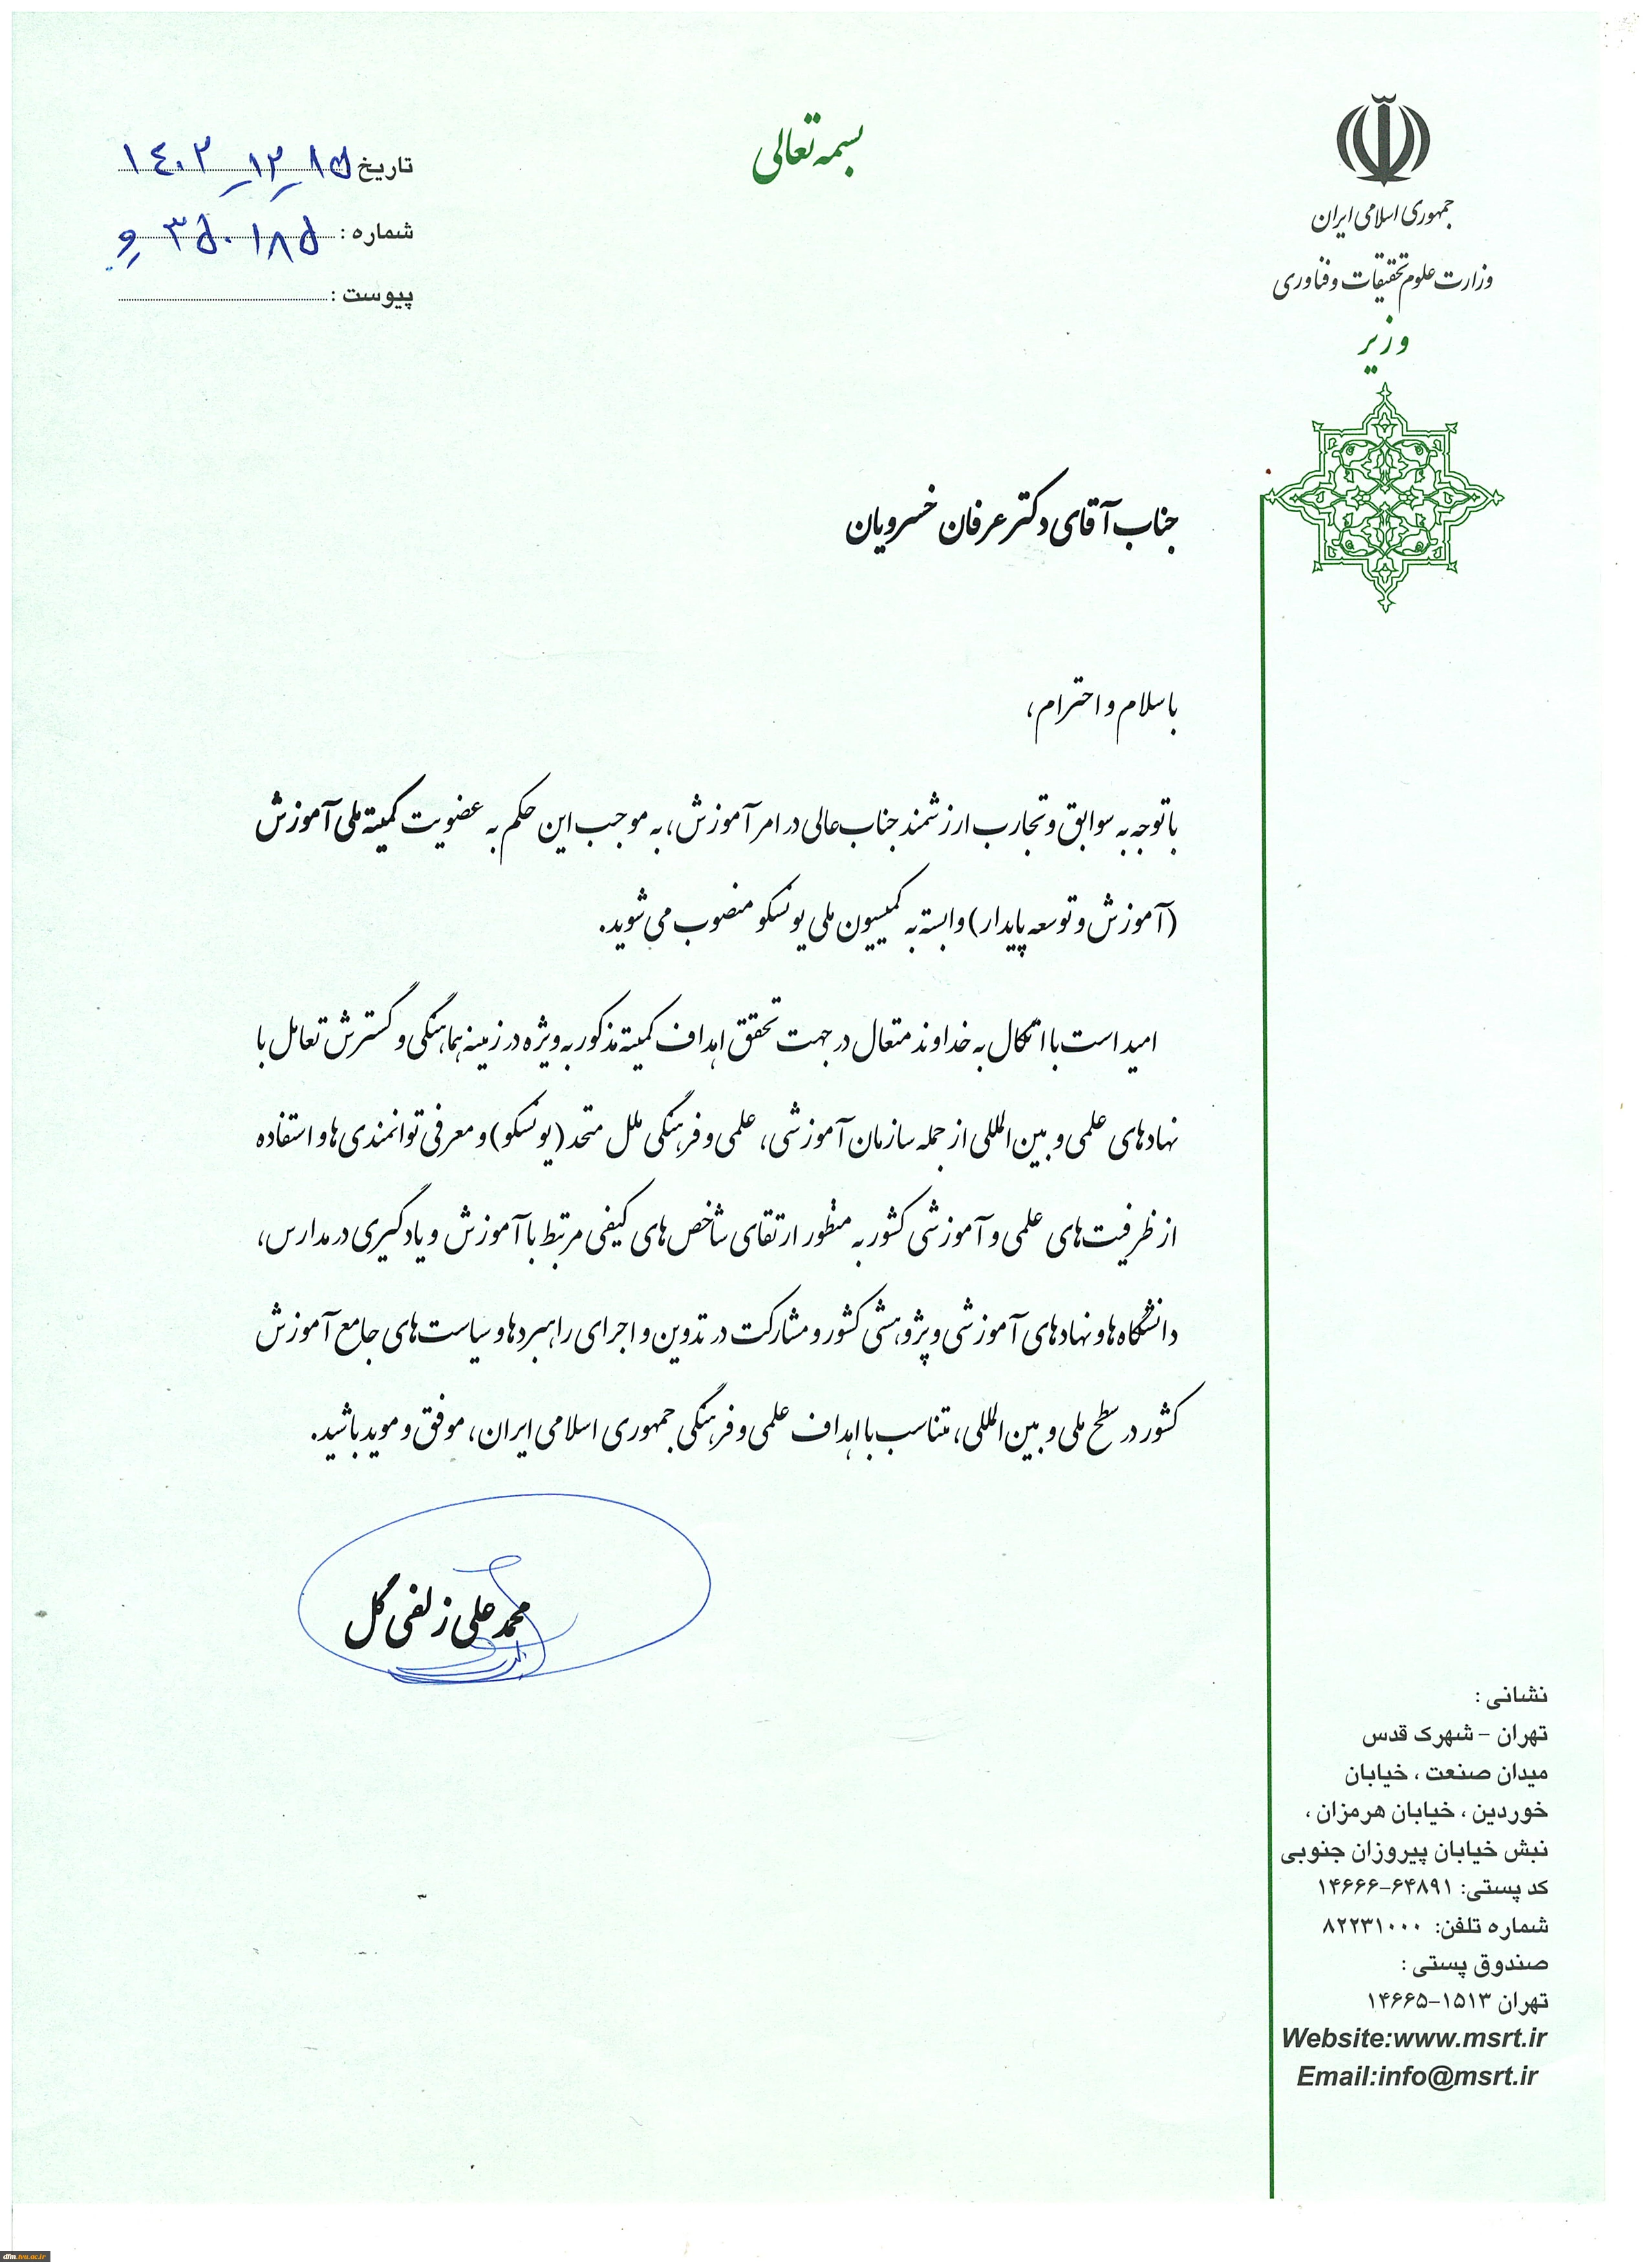 بسمه تعالی
جمهوری اسلامی ایران
وزارت علوم تحقیقات و فناوری
وزیر
تاریخ ۱۴۰۲-۱۲-۱۵
شماره : ۳۵۰۱۸۵ و
پیوست :
جناب آقای دکتر عرفان خسرویان
با سلام و احترام،
با توجه به سوابق و تجارب ارزشمند جناب‌عالی در امر آموزش، به موجب این حکم به عضویت کمیته ملی آموزش
(آموزش و توسعه پایدار) وابسته به کمیسیون ملی یونسکو منصوب می‌شوید.
امید است با اتکال به خداوند متعال در جهت تحقق اهداف کمیته مذکور به ویژه در زمینه هماهنگی و گسترش تعامل با
نهادهای علمی و بین‌المللی از جمله سازمان آموزشی، علمی و فرهنگی ملل متحد (یونسکو) و معرفی توانمندی‌ها و استفاده
از ظرفیت‌های علمی و آموزشی کشور به منظور ارتقای شاخص‌های کیفی مرتبط با آموزش و یادگیری در مدارس،
دانشگاه‌ها و نهادهای آموزشی و پژوهشی کشور و مشارکت در تدوین و اجرای راهبردها و سیاست‌های جامع آموزش
کشور در سطح ملی و بین‌المللی، متناسب با اهداف علمی و فرهنگی جمهوری اسلامی ایران، موفق و موید باشید.
محمد علی زلفی گل
نشانی :
تهران - شهرک قدس
میدان صنعت ، خیابان
خوردین ، خیابان هرمزان ،
نبش خیابان پیروزان جنوبی
کد پستی: ۱۴۶۶۶-۶۴۸۹۱
شماره تلفن: ۸۲۲۳۱۰۰۰
صندوق پستی :
تهران ۱۵۱۳-۱۴۶۶۵
Website:www.msrt.ir
Email:info@msrt.ir
dfm.tvu.ac.ir